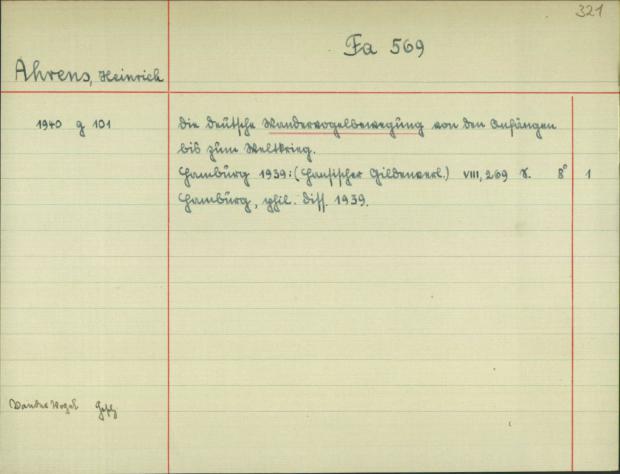 321
Fa 569
Ahrens, Heinrich
1940 g 101
Die deutsche Wandervogelbewegung von den Anfängen
bis zum Weltkrieg.
Hamburg 1939: (Hansischer Gildenverl.) VIII, 269 S. 8° 1
Hamburg, phil. Diss. 1939.
Wandervogel Gesch